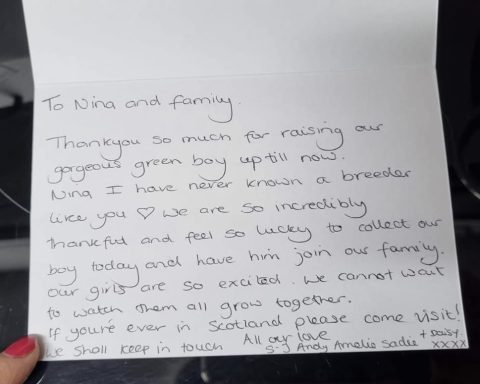 To Nina and family.
Thankyou so much for raising our
gorgeous green boy up till now.
Nina I have never known a breeder
like you ♡ We are so incredibly
thankful and feel so lucky to collect our
boy today and have him join our family.
Our girls are so excited. We cannot wait
to watch them all grow together.
If you're ever in Scotland please come visit!
We shall keep in touch All our love
S-J Andy Amelie Sadie + Daisy.
xxxx